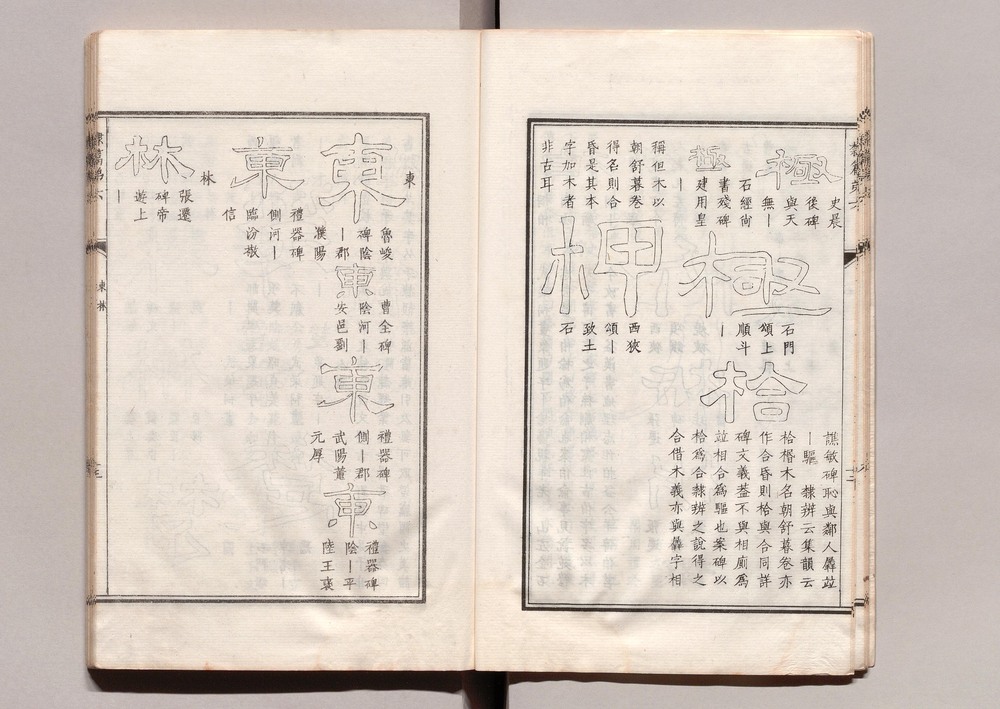 極
史晨
後碑
與天
無丨
極
石經尚
書殘碑
建用皇
丨
極
石門
頌上
順斗
丨
枱
譙敏碑恥與鄰人羴竝
丨驅 隸辨云集韻云
枱榰木名朝舒暮卷亦
作合昏則枱與合同詳
碑文義蓋不與相廁為
竝相合為驅也案碑以
枱為合隸辨之說得之
合借木義亦與羴字相
稱但木以
朝舒暮卷
得名則合
昏是其本
字加木者
非古耳
柙
西狹
頌丨
致土
石
東
東
魯峻
碑陰
丨郡
濮陽
東
曹全碑
陰河丨
安邑劉
東
禮器碑
側丨郡
武陽董
元厚
東
禮器碑
陰丨平
陸王褒
東
禮器碑
側河丨
臨汾敬
信
林
林
張遷
碑帝
遊上
丨
東林